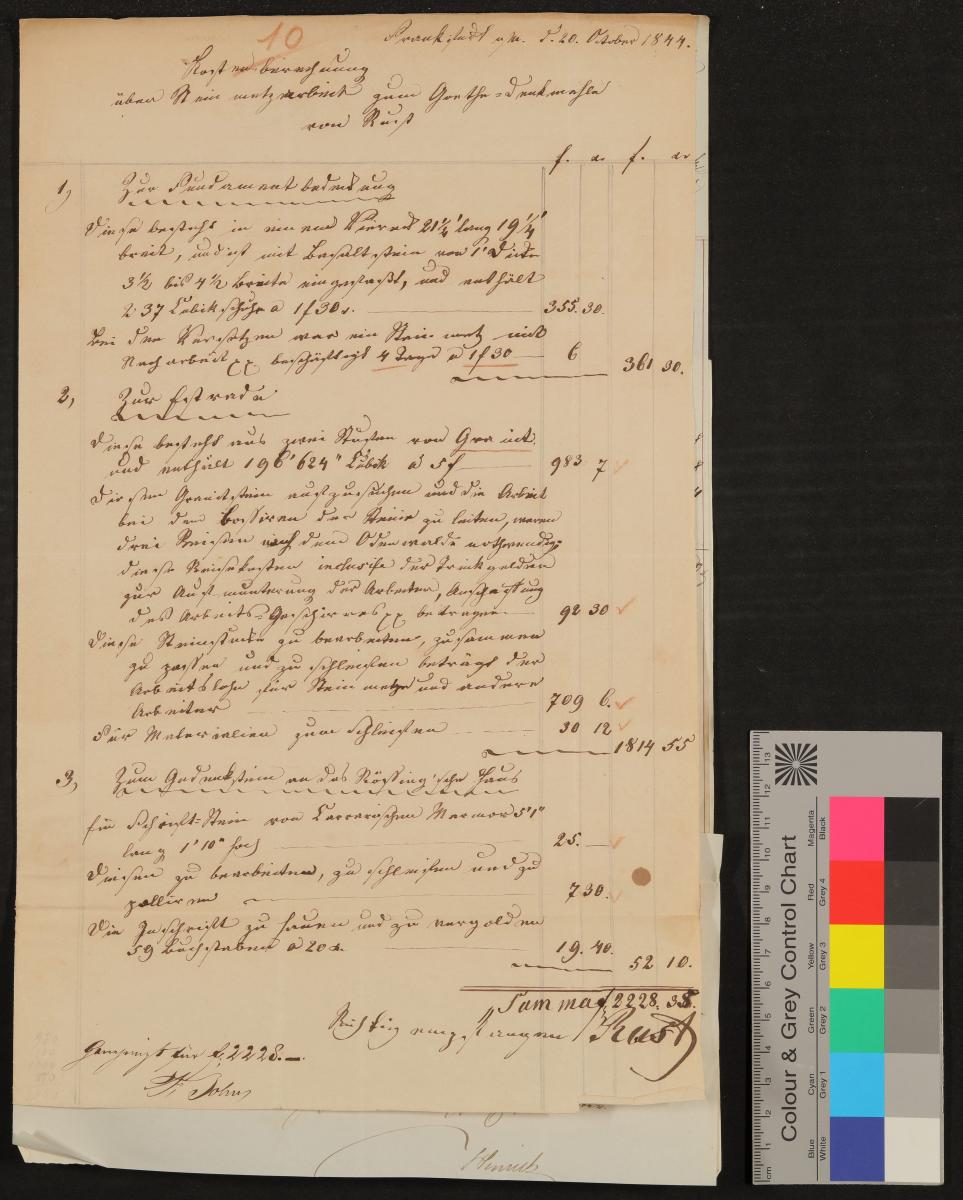 10
Frankfurt a/M. d. 20. October 1844.
Kostenberechnung
über Steinmetzarbeit zum Goethe=denkmahle
von Rust
f. xr f. xr
1, Zur Fundamentbedeckung
Diese besteht in einem Viereck 21¼' lang 19¼'
breit, und ist mit Basaltstein von 1' Dicke
3½ bis 4½ Breite eingefaßt, und enthält
237 Cubikschuhe a 1f 30x. 355. 30.
Bei dem Versetzen war ein Steinmetz mit
Nacharbeit xx beschäftigt 4 Tage a 1f 30 6 361 30.
2, Zur Estrade
Diese besteht aus zwei Stufen von Granit
und enthält 196' 624" Cubik à 5f 983 7
Diesen Granitstein auszusuchen und die Arbeit
bei dem Bossiren der Steine zu leiten, waren
drei Reisen nach dem Odenwalde nothwendig;
diese Reisekosten inclusife der Trinkgelder
zur Aufmunterung der Arbeiter, Anschaffung
des Arbeits=Geschirres xx betragen 92 30
Diese Steinstücke zu bearbeiten, zusammen
zu passen und zu schleifen beträgt der
Arbeitslohn für Steinmetze und andere
Arbeiter 709 6.
Für Materialien zum schleifen 30 12
1814 55
3, Zum Gedenkstein an das Rössing'sche Haus
Ein Schrift=Stein von Carrarischem Marmor 5' 1"
lang 1' 10" hoch 25. —
Diesen zu bearbeiten, zu schleifen und zu
polliren 7 30.
Die Inschrift zu hauen und zu vergolden
59 Buchstaben a 20x. 19. 40.
52 10.
Summa f. 2228. 35.
Richtig empfangen Rust
Genehmigt für f. 2228. —
John
Colour & Grey Control Chart
Blue Cyan Green Yellow Red Magenta
White Grey 1 Grey 2 Grey 3 Grey 4 Black
cm 1 2 3 4 5 6 7 8 9 10 11 12 13